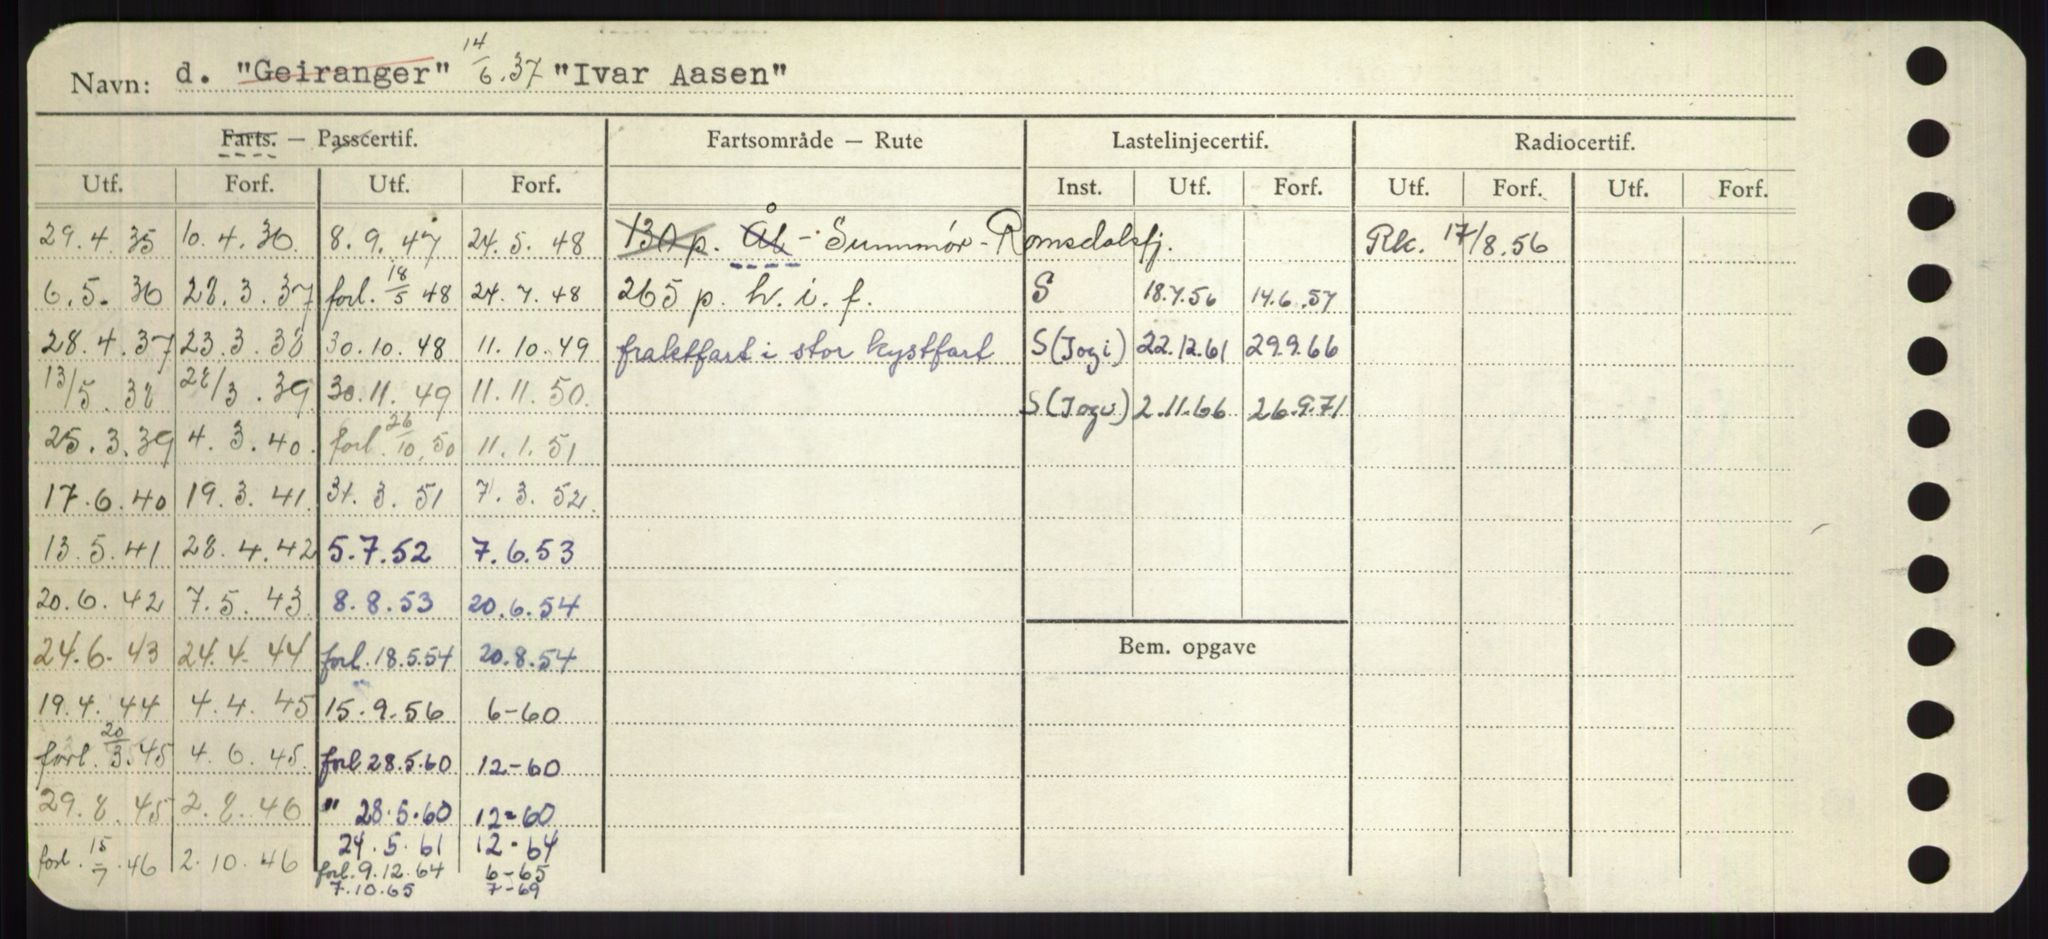 Navn: d. "Geiranger" 14/6.37 "Ivar Aasen"
Farts. — Passcertif. Fartsområde — Rute Lastelinjecertif. Radiocertif.
Utf. Forf. Utf. Forf. Inst. Utf. Forf. Utf. Forf. Utf. Forf.
29.4.35 10.4.36. 8.9.47 24.5.48 130 p. Ål - Sunnmør - Romsdalsfj. Rk. 17/8.56
6.5.36 22.3.37 forl. 18/5 48 24.7.48 265 p. h. i. f. S 18.7.56 14.6.57
28.4.37 23.3.38 30.10.48 11.10.49 fraktfart i stor kystfart S (Jogi) 22.12.61 29.9.66
13/5.38 28/3.39 30.11.49 11.11.50. S (Jogi) 2.11.66 26.9.71
25.3.39 4.3.40. forl. 26/10.50 11.1.51
17.6.40 19.3.41. 31.3.51 7.3.52.
13.5.41 28.4.42 5.7.52 7.6.53
20.6.42 7.5.43. 8.8.53 20.6.54
24.6.43 24.4.44 forl. 18.5.54 20.8.54 Bem. opgave
19.4.44 4.4.45 15.9.56 6-60
forl. 20/3.45 4.6.45. forl 28.5.60 12-60
29.8.45 2.8.46 " 28.5.60 12-60
24.5.61 12-64
forl. 15/7.46 2.10.46 forl. 9.12.64 6-65
7.10.65 7-69